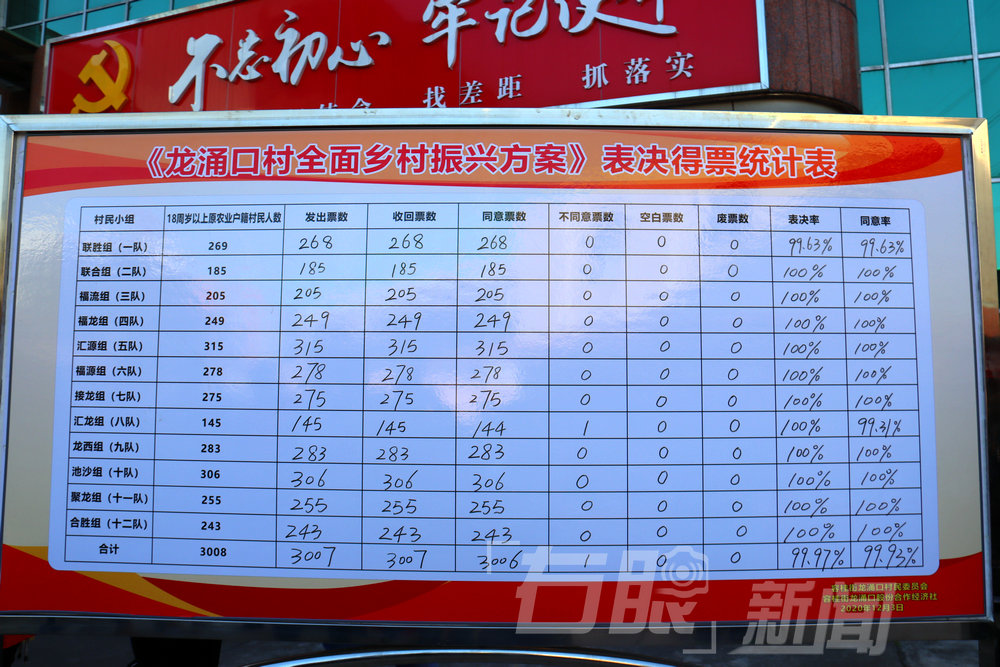 不忘初心 牢记使命
找差距 抓落实
《龙涌口村全面乡村振兴方案》表决得票统计表
村民小组 18周岁以上原农业户籍村民人数 发出票数 收回票数 同意票数 不同意票数 空白票数 废票数 表决率 同意率
联胜组（一队） 269 268 268 268 0 0 0 99.63% 99.63%
联合组（二队） 185 185 185 185 0 0 0 100% 100%
福流组（三队） 205 205 205 205 0 0 0 100% 100%
福龙组（四队） 249 249 249 249 0 0 0 100% 100%
汇源组（五队） 315 315 315 315 0 0 0 100% 100%
福源组（六队） 278 278 278 278 0 0 0 100% 100%
接龙组（七队） 275 275 275 275 0 0 0 100% 100%
汇龙组（八队） 145 145 145 144 1 0 0 100% 99.31%
龙西组（九队） 283 283 283 283 0 0 0 100% 100%
池沙组（十队） 306 306 306 306 0 0 0 100% 100%
聚龙组（十一队） 255 255 255 255 0 0 0 100% 100%
合胜组（十二队） 243 243 243 243 0 0 0 100% 100%
合计 3008 3007 3007 3006 1 0 0 99.97% 99.93%
容桂街龙涌口村民委员会
容桂街龙涌口股份合作经济社
2020年12月3日
「右眼」新闻